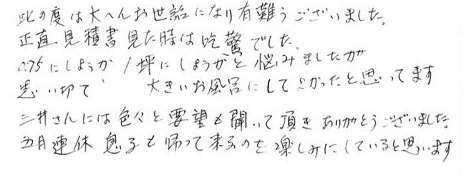 此の度は大へんお世話になり有難うございました。
正直見積書見た時は吃驚でした。
0.75にしようか 1坪にしようかと悩みましたが
思い切て 大きいお風呂にしてよかったと思ってます
三井さんには色々と要望も聞いて頂きありがとうございました。
五月連休 息子も帰って来るのを楽しみにしていると思います